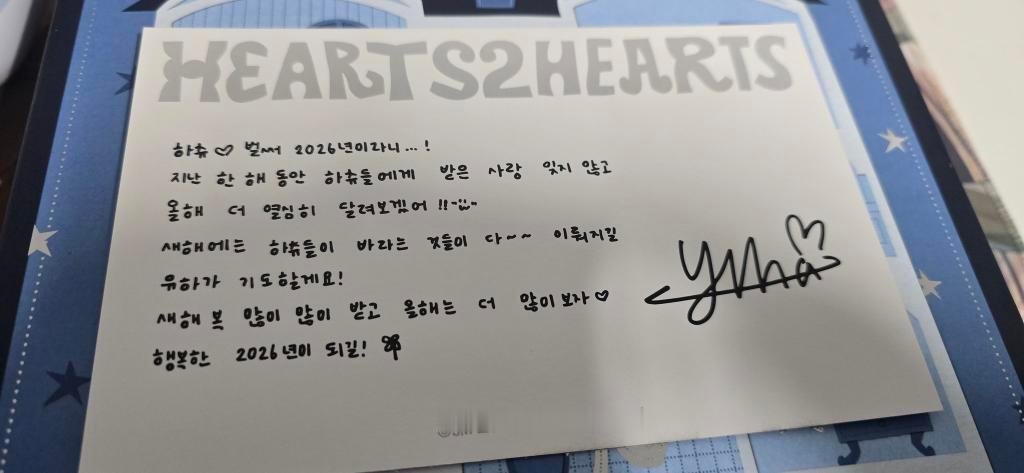 HEARTS2HEARTS
하츄♡ 벌써 2026년이라니...!
지난 한 해 동안 하츄들에게 받은 사랑 잊지 않고
올해 더 열심히 달려보겠어!!
새해에는 하츄들이 바라는 것들이 다~~ 이뤄지길
유하가 기도할게요!
새해 복 많이 많이 받고 올해는 더 많이 보자♡
행복한 2026년이 되길!
yuha